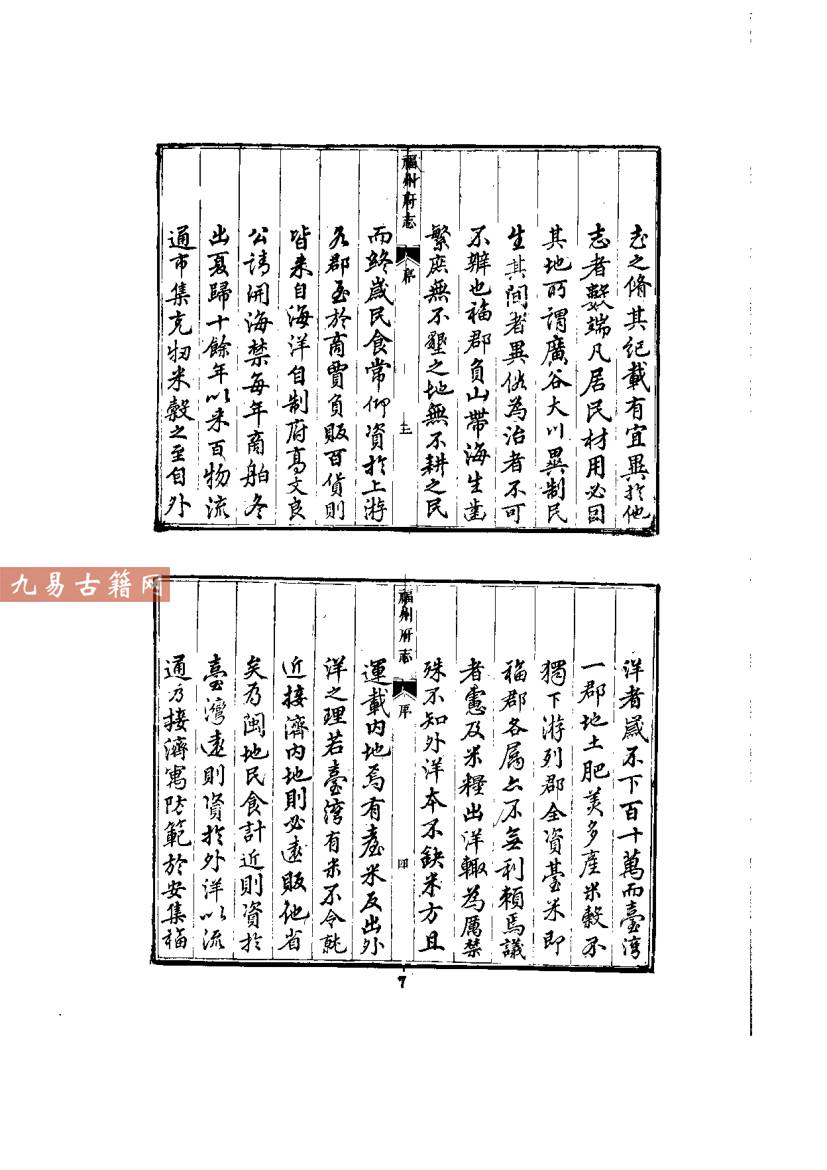 志之脩其紀載有宜異於他
志者數端凡居民材用必因
其地所謂廣谷大川異制民
生其間者異俗為治者不可
不辨也福郡負山帶海生齒
繁庶無不墾之地無不耕之民
福州府志
序
三
而終歲民食常仰資於上游
各郡至於商賈負販百貨則
皆來自海洋自制府高文良
公請開海禁每年商舶冬
出夏歸十餘年以來百物流
通市集充牣米穀之至自外
九易古籍网
洋者歲不下百十萬而臺灣
一郡地土肥美多產米穀不
獨下游列郡全資臺米即
福郡各属亦不無利賴焉議
者慮及米糧出洋輙為厲禁
殊不知外洋本不缺米方且
福州府志
序
四
運載內地焉有臺米反出外
洋之理若臺灣有米不令就
近接濟內地則必遠販他省
矣乃閩地民食計近則資於
臺灣遠則資於外洋以流
通為接濟寓防範於安集福
7